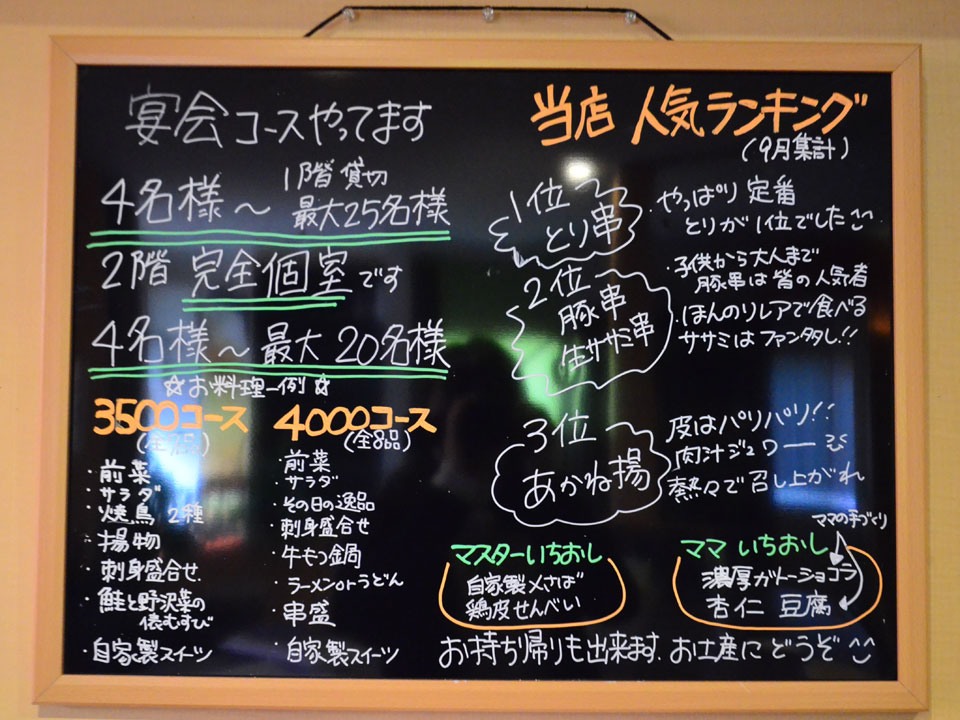 宴会コースやってます
1階貸切
4名様～最大25名様
2階 完全個室です
4名様～最大20名様
☆お料理一例☆
3500コース
(全7品)
・前菜
・サラダ
・焼鳥 2種
・揚物
・刺身盛合せ
・鮭と野沢菜の
俵むすび
・自家製スイーツ
4000コース
(全8品)
・前菜
・サラダ
・その日の逸品
・刺身盛合せ
・牛もつ鍋
・ラーメンorうどん
・串盛
・自家製スイーツ
当店 人気ランキング
(9月集計)
1位～
とり串
・やっぱり定番
とりが1位でした
2位～
豚串
生ササミ串
・子供から大人まで
豚串は皆の人気者
・ほんのりレアで食べる
ササミはファンタスし!!
3位～
あかね揚
皮はパリパリ!!
肉汁ジュワーっ
熱々で召し上がれ
マスターいちおし
自家製〆さば
鶏皮せんべい
ママの手づくり
ママ いちおし
濃厚ガトーショコラ
杏仁 豆腐
お持ち帰りも出来ます。お土産にどうぞ